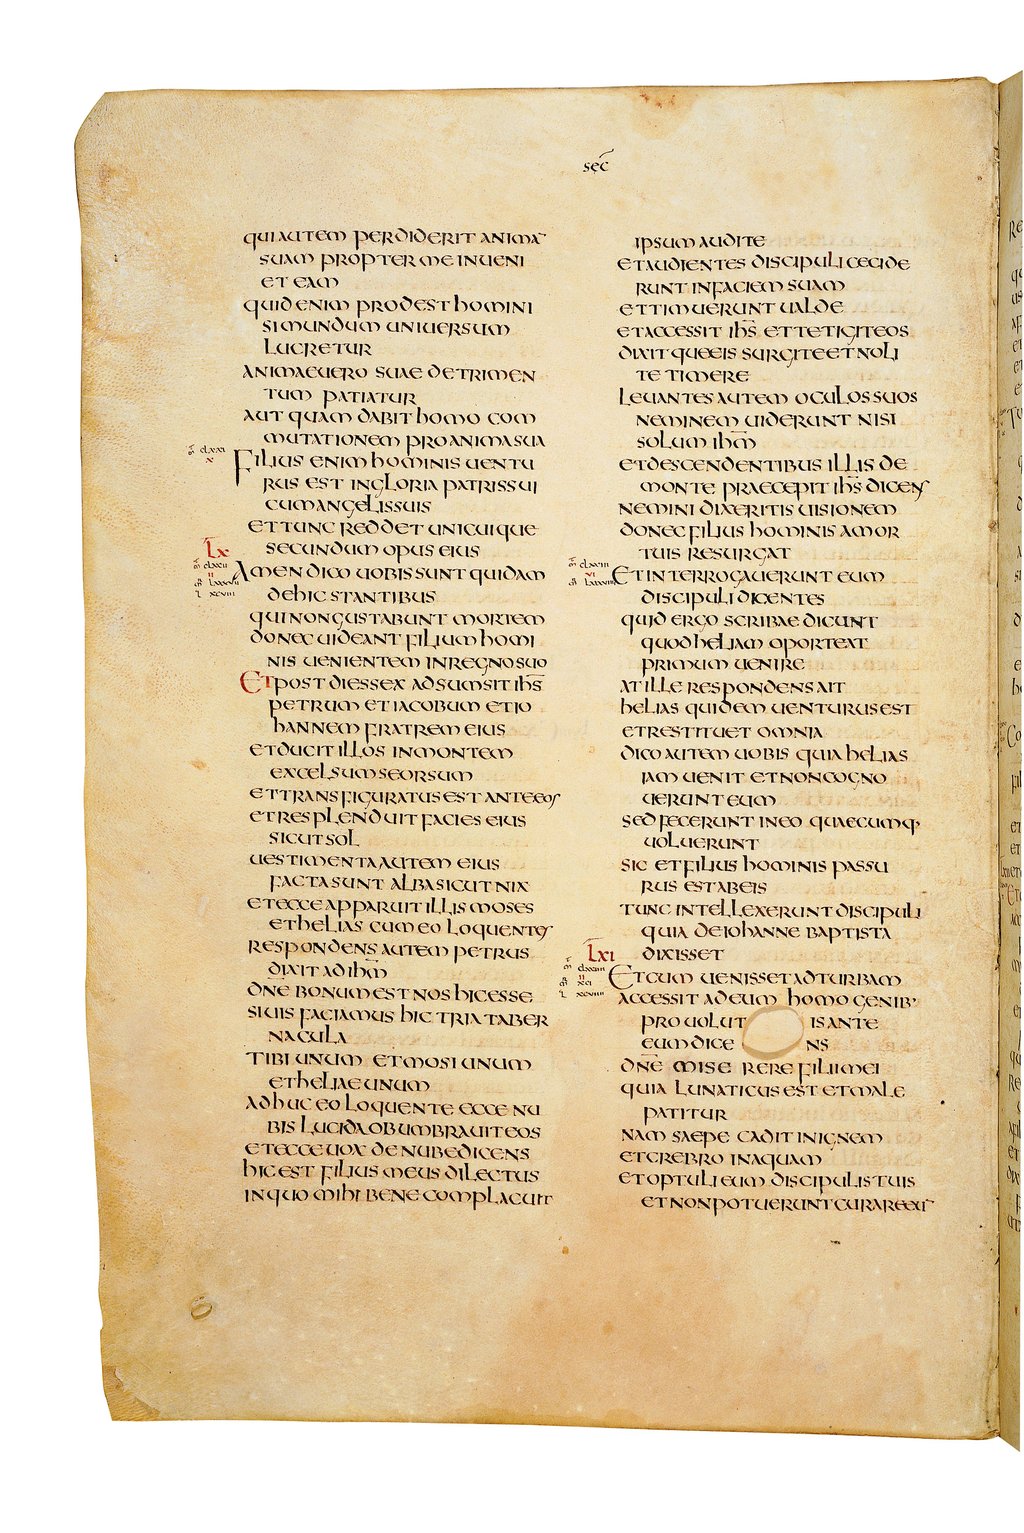 sec̄
qui autem perdiderit anima¯
suam propter me inueni
et eam
quid enim prodest homini
si mundum uniuersum
lucretur
animae uero suae detrimen
tum patiatur
aut quam dabit homo com
mutationem pro anima sua
clxxi
x
Filius enim hominis uentu
rus est in gloria patris sui
cum angelis suis
et tunc reddet unicuique
secundum opus eius
lx
clxxii
ii
lxxxvii
xcviii
Amen dico uobis sunt quidam
de hic stantibus
qui non gustabunt mortem
donec uideant filium homi
nis uenientem in regno suo
Et post dies sex adsumsit ih̄s
petrum et iacobum et io
hannem fratrem eius
et ducit illos in montem
excelsum seorsum
et transfiguratus est ante eos
et resplenduit facies eius
sicut sol
uestimenta autem eius
facta sunt alba sicut nix
et ecce apparuit illis moses
et helias cum eo loquentes
respondens autem petrus
dixit ad ih̄m
dn̄e bonum est nos hic esse
si uis faciamus hic tria taber
nacula
tibi unum et mosi unum
et heliae unum
adhuc eo loquente ecce nu
bis lucida obumbrauit eos
et ecce uox de nube dicens
hic est filius meus dilectus
in quo mihi bene complacuit
ipsum audite
et audientes discipuli cecide
runt in faciem suam
et timuerunt ualde
et accessit ih̄s et tetigit eos
dixit que eis surgite et noli
te timere
leuantes autem oculos suos
neminem uiderunt nisi
solum ih̄m
et descendentibus illis de
monte praecepit ih̄s dicens
nemini dixeritis uisionem
donec filius hominis a mor
tuis resurgat
clxxiii
vi
lxxxviiii
Et interrogauerunt eum
discipuli dicentes
quid ergo scribae dicunt
quod heliam oporteat
primum uenire
at ille respondens ait
helias quidem uenturus est
et restituet omnia
dico autem uobis quia helias
iam uenit et non cogno
uerunt eum
sed fecerunt in eo quaecumq·
uoluerunt
sic et filius hominis passu
rus est ab eis
tunc intellexerunt discipuli
quia de iohanne baptista
lxi dixisset
clxxiiii
ii
xci
xcviiii
Et cum uenisset ad turbam
accessit ad eum homo genib·
prouolut is ante
eum dice ns
dn̄e miserere filii mei
quia lunaticus est et male
patitur
nam saepe cadit in ignem
et crebro in aquam
et optuli eum discipulis tuis
et non potuerunt curare eu¯